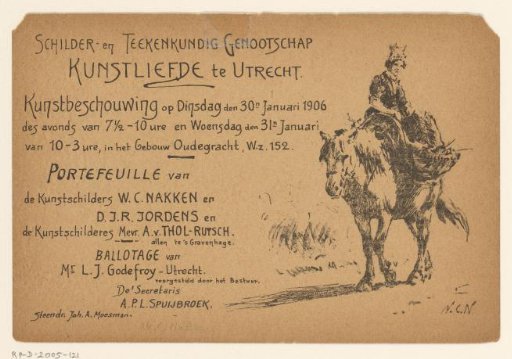 SCHILDER- en TEEKENKUNDIG GENOOTSCHAP
KUNSTLIEFDE te UTRECHT.
Kunstbeschouwing op Dinsdag den 30en Januari 1906
des avonds van 7½-10 ure en Woensdag den 31en Januari
van 10-3 ure, in het Gebouw Oudegracht, W.z. 152.
PORTEFEUILLE van
de Kunstschilders W. C. NAKKEN en
D. J. R. JORDENS en
de Kunstschilderes Mevr. A. v. THOL-RUYSCH.
allen te 's Gravenhage.
BALLOTAGE van
Mr L. J. Godefroy - Utrecht.
voorgesteld door het Bestuur.
De Secretaris
A. P. L. SPUIJBROEK.
Steendr. Joh. A. Moesman.
W.C.N.
RP-D-2005-121